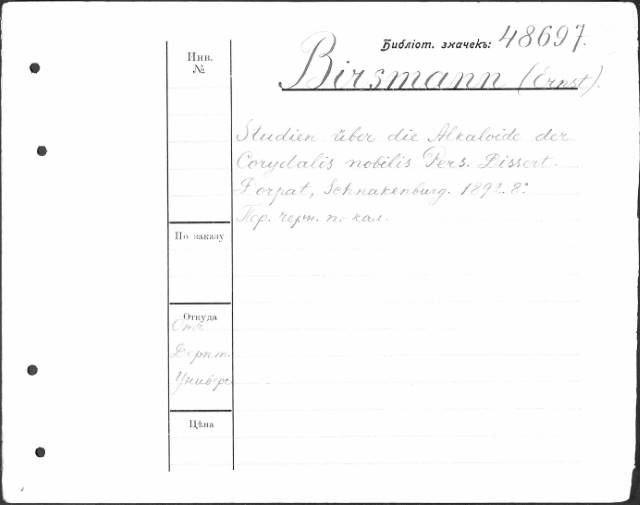 Библіот. значекъ: 48697.
Инв.
№
Birsmann (Ernst).
Studien über die Alkaloide der
Corydalis nobilis Pers. Dissert.
Dorpat, Schnakenburg. 1892. 8º
Пер. черн. п. кал.
По заказу
Откуда
Отъ
Дерпт.
Универс
Цѣна